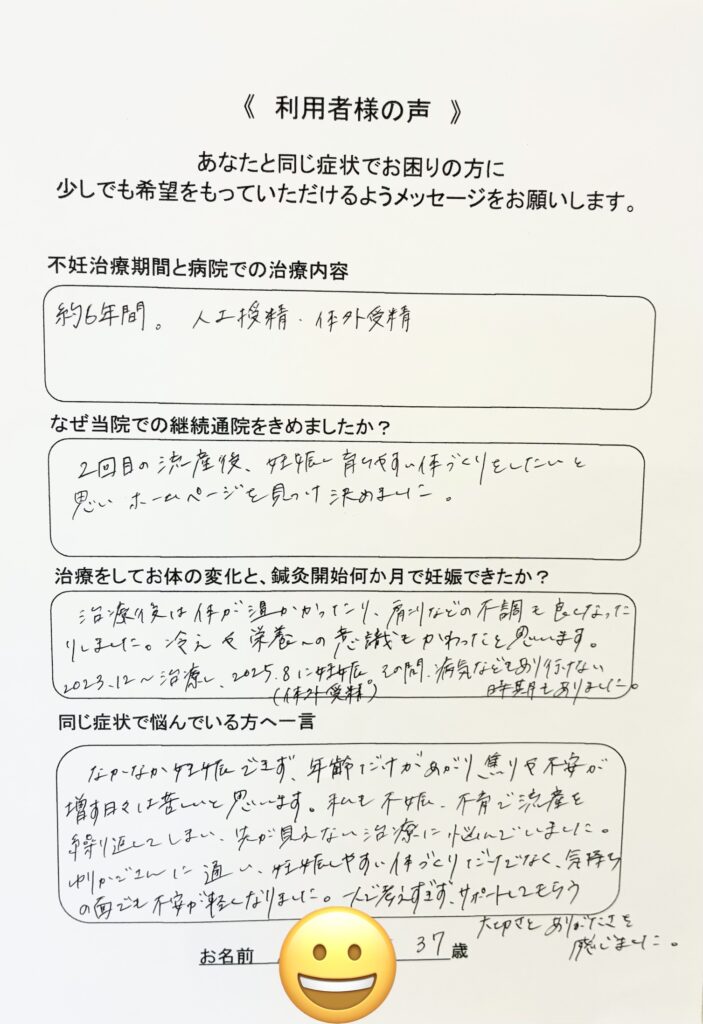 《 利用者様の声 》
あなたと同じ症状でお困りの方に
少しでも希望をもっていただけるようメッセージをお願いします。
不妊治療期間と病院での治療内容
約6年間。 人工授精・体外受精
なぜ当院での継続通院をきめましたか？
2回目の流産後、妊娠し育ちやすい体づくりをしたいと
思い ホームページを見つけ決めました。
治療をしてお体の変化と、鍼灸開始何か月で妊娠できたか？
治療後は体が温かかったり、肩こりなどの不調も良くなった
りしました。冷えや栄養への意識もかわったと思います。
2023.12〜治療し、2025.8に妊娠。その間、病気などもあり行けない
(体外受精) 時期もありました。
同じ症状で悩んでいる方へ一言
なかなか妊娠できず、年齢だけがあがり焦りや不安が
増す日々は苦しいと思います。私も不妊、不育で流産を
繰り返してしまい、先が見えない治療に悩んでいました。
ゆりかごさんに通い、妊娠しやすい体づくりだけでなく、気持ち
の面でも不安が軽くなりました。一人で考えすぎず、サポートしてもらう
大切さとありがたさを
感じました。
お名前 37歳